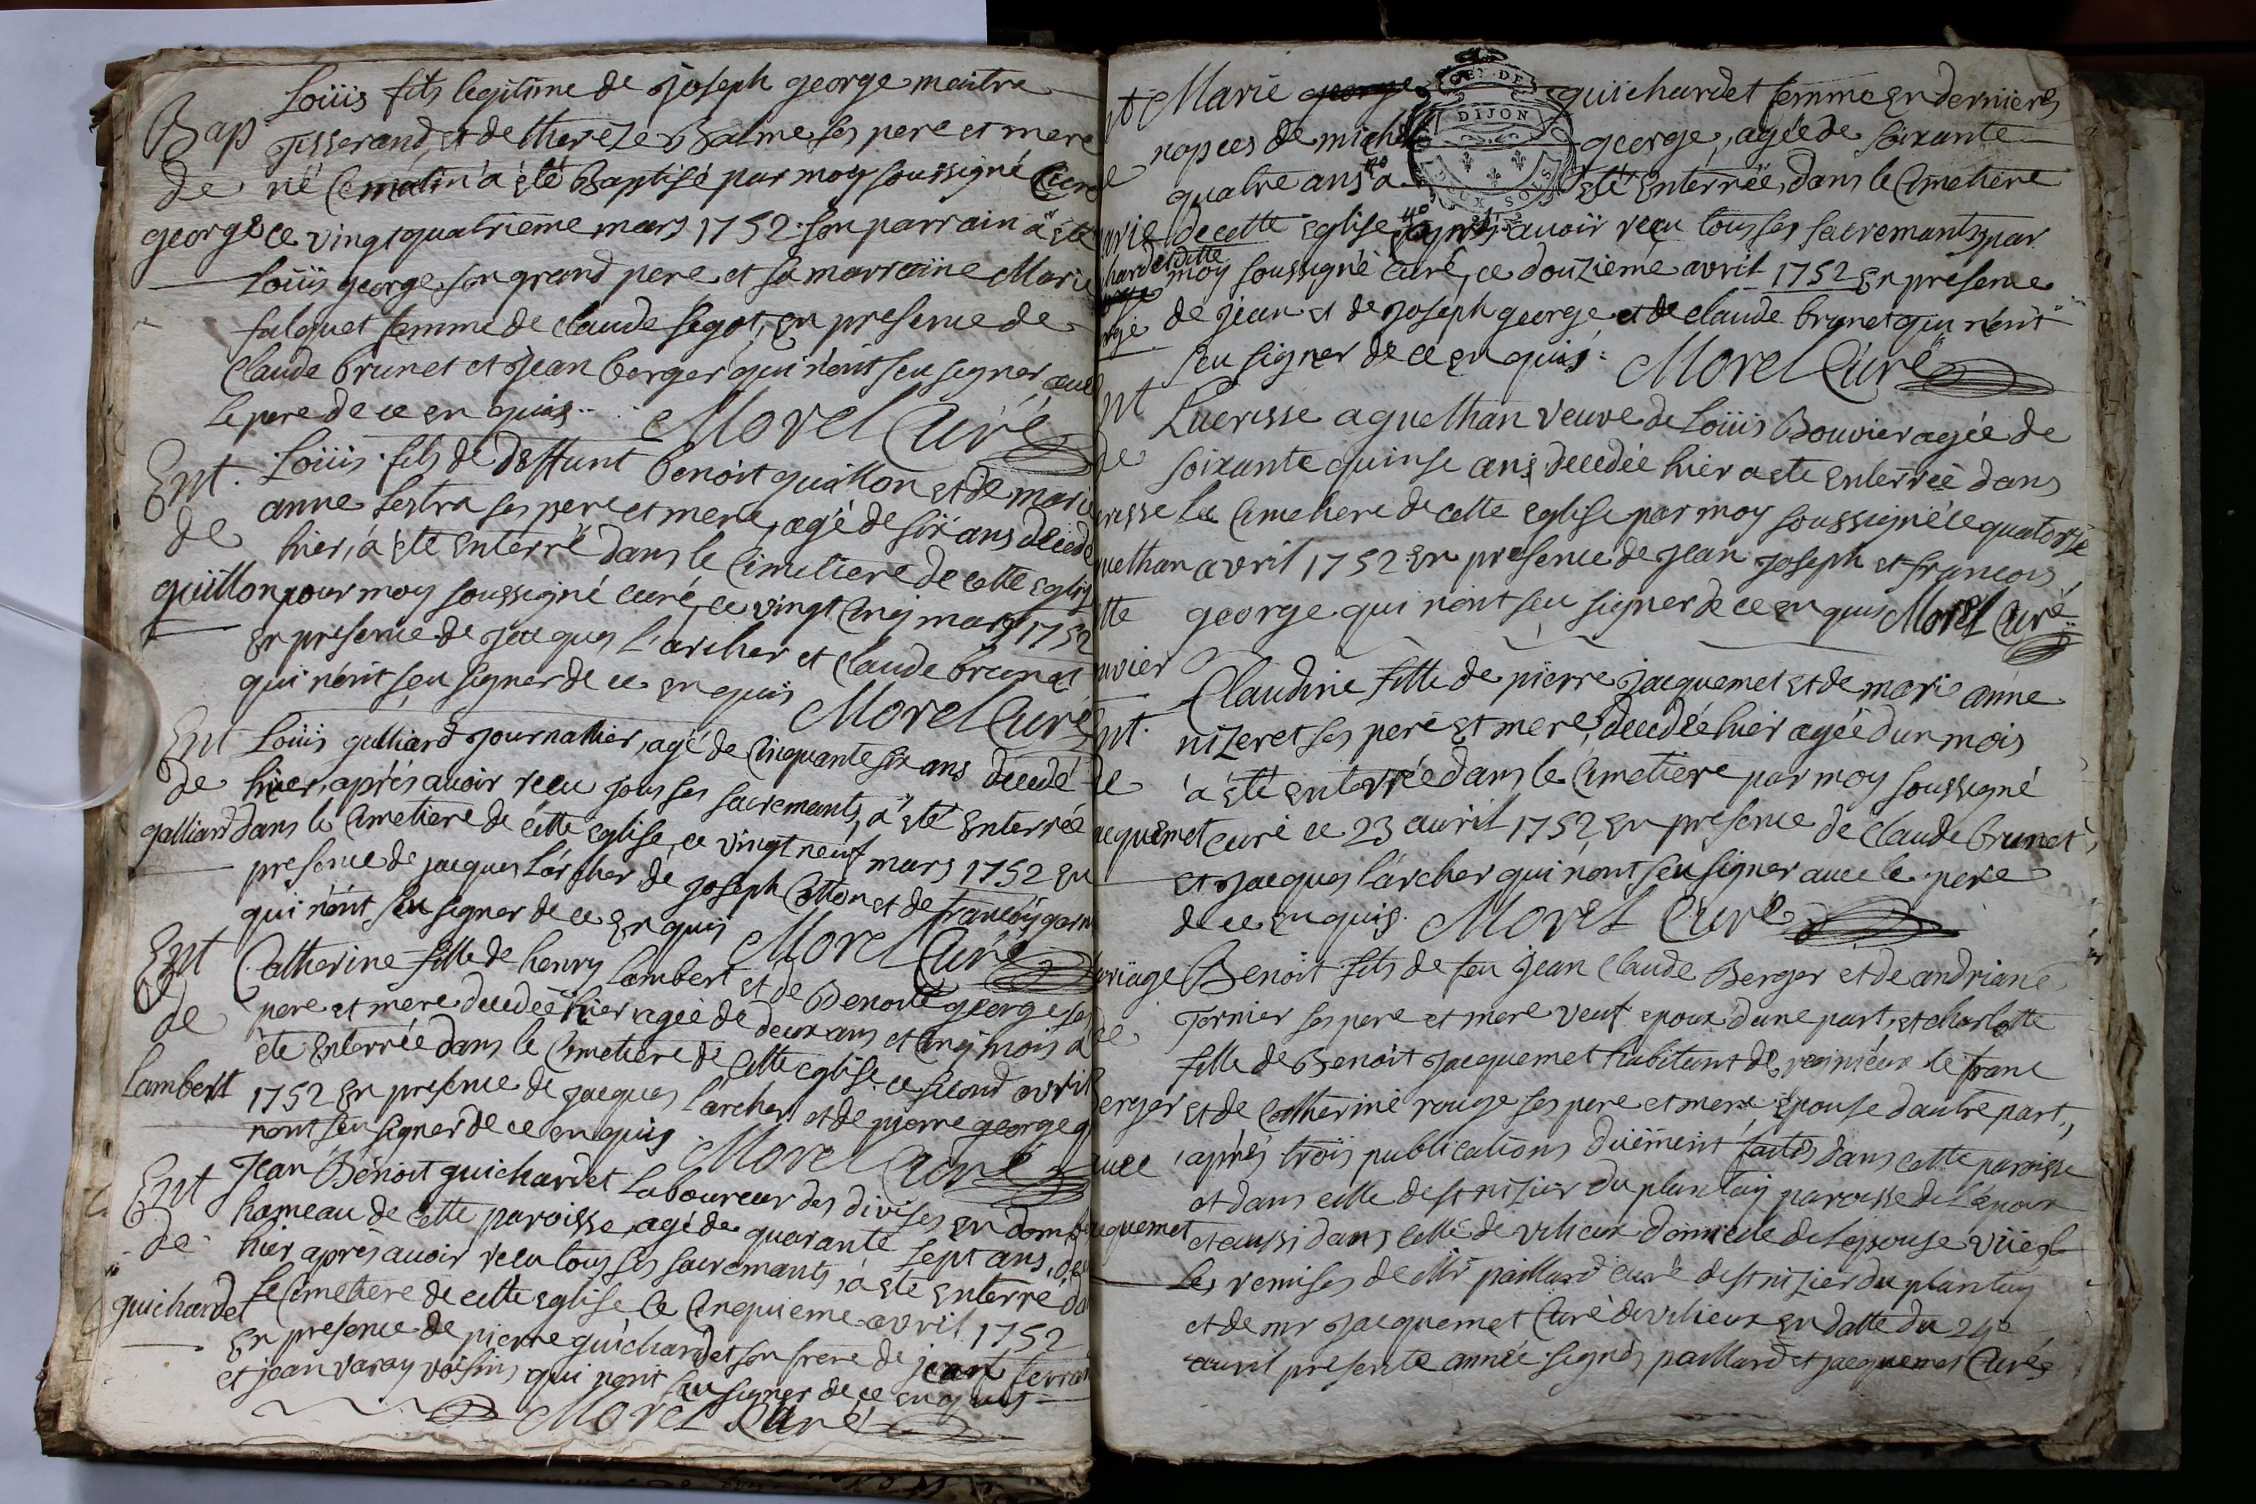 Bap
de
george
Loüis fils legitime de Joseph george maitre
Tisserand, et de thereze Balme ses pere et mere
né Ce matin a été Baptisé par moy soussigné Curé
ce vingt quatrieme mars 1752. son parrain a été
Loüis george son grand pere et sa marraine Marie
falquet femme de Claude segot, en presence de
Claude brunet et Jean berger qui n'ont seu signer avec
le pere de ce enquis.. Morel Curé
Ent.
de
guillon
Loüis fils de deffunt benoit guillon et de marie
anne lestra ses pere et mere, agé de six ans decedé
hier, a été enterré dans le Cimetiere de cette eglise
pour moy soussigné curé, ce vingt Cinq mars 1752
en presence de Jacques Larcher et Claude brunet
qui n'ont seu signer de ce enquis Morel Curé
Ent
de
galliard
Loüis galliard Journallier, agé de Cinquante six ans decedé
hier, aprés avoir recu tous ses sacremants, a été enterrée
dans le Cimetiere de cette eglise, ce vingt neuf mars 1752 en
presence de jacques Larcher de Joseph Cotton et de francois
qui n'ont seu signer de ce enquis Morel Curé
Ent
de
lambert
Catherine fille de henry lambert et de Benoite george ses
pere et mere decedée hier agée de deux ans et Cinq mois a
ete enterrée dans le Cimetiere de Cette eglise ce second avril
1752 en presence de Jacques Larcher, et de pierre george q
nont seu signer de ce enquis Morel Curé
Ent
de
guichardet
Jean Benoit guichardet Laboureur des divises en domb
hameau de cette paroisse, agé de quarante sept ans, de
hier, apres avoir recu tous ses sacremants, a été enterré da
le Cimetiere de cette eglise Ce Cinquieme avril 1752
en presence de pierre guichardet son frere de jean ferra
et jean varay voisins qui n'ont seu signer de ce enquis
Morel Curé
nt
e
Marie george guichardet femme en dernieres
nopces de michel george, agée de soixante
quatre ans a été enterrée, dans le Cimetiere
de cette eglise aprés avoir recu tous ses sacremants par
moy soussigné Curé, ce douzieme avril 1752 en presence
de jean et de joseph george et de claude brunet qui n'ont
seu signer de ce enquis: Morel Curé
DIJON
DEUX SOLS
nt
de
resse
uethan
tte
uvier
Lucresse aguethan veuve de Loüis Bouvier agée de
soixante quinse ans decedée hier a ete enterrée dans
Le Cimetiere de cette eglise par moy soussigné le quatorse
avril 1752 en presence de Jean Joseph et francois
george qui n'ont seu signer de ce enquis Morel Curé
nt.
de
acquemet
Claudine fille de pierre Jacquemet et de mari anne
nizeret ses pere et mere, decedée hier agée d'un mois
a été enterrée dans le Cimetiere par moy soussigné
curé ce 23 avril 1752 en presence de Claude brunet
et Jacques Larcher qui n'ont seu signer avec le pere
de ce enquis. Morel Curé
ariage
de
erger
avec
acquemet
Benoit fils de feu Jean Claude Berger et de andriane
Tornier ses pere et mere veuf epoux d'une part, et charlotte
fille de Benoit Jacquemet habitant de le franc
et de Catherine rouge ses pere et mere, épouse d'autre part,
aprés trois publications düement faites dans cette paroisse
et dans celle de st nizier du plantay paroisse de L'epoux
et aussi dans celle de vilieux domicile de Lepouse vüe
les remises de Mr paillard curé de st nizier du plantay
et de mr Jacquemet Curé de vilieux en datte du 24e
avril presente année signés paillard et jacquemet Curés